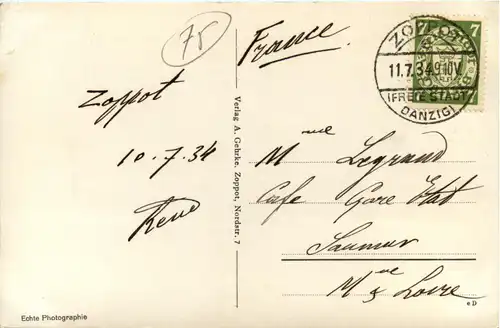 75
France
ZOPPOT
7
11.7.34.9-10V
(FREIE STADT
DANZIG)
Zoppot
10.7.34
René
Verlag A. Gehrke, Zoppot, Nordstr. 7
Mme Legrand
Cafe Gare Etat
Saumur
Mne & Loire
Echte Photographie
eD